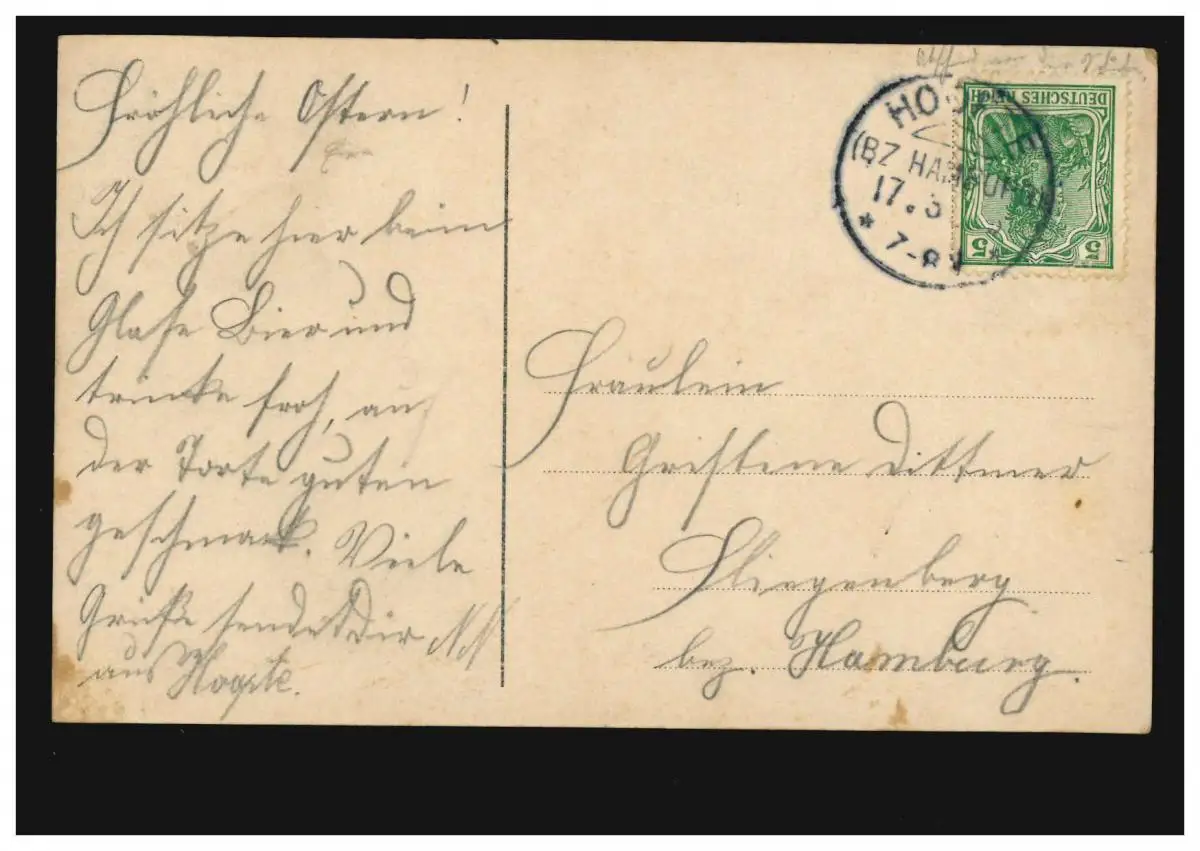 Fröhliche Ostern!
Ich sitze hier beim
Glase Bier und
trinke froh, auf
der Torte guten
geschmack. Viele
Grüße sendet Dir
aus
(BZ HAMBURG)
17. 3
* 7-8 V *
DEUTSCHES REICH
5 5
Fräulein
Dittmer
Fliegenberg
bez. Hamburg.